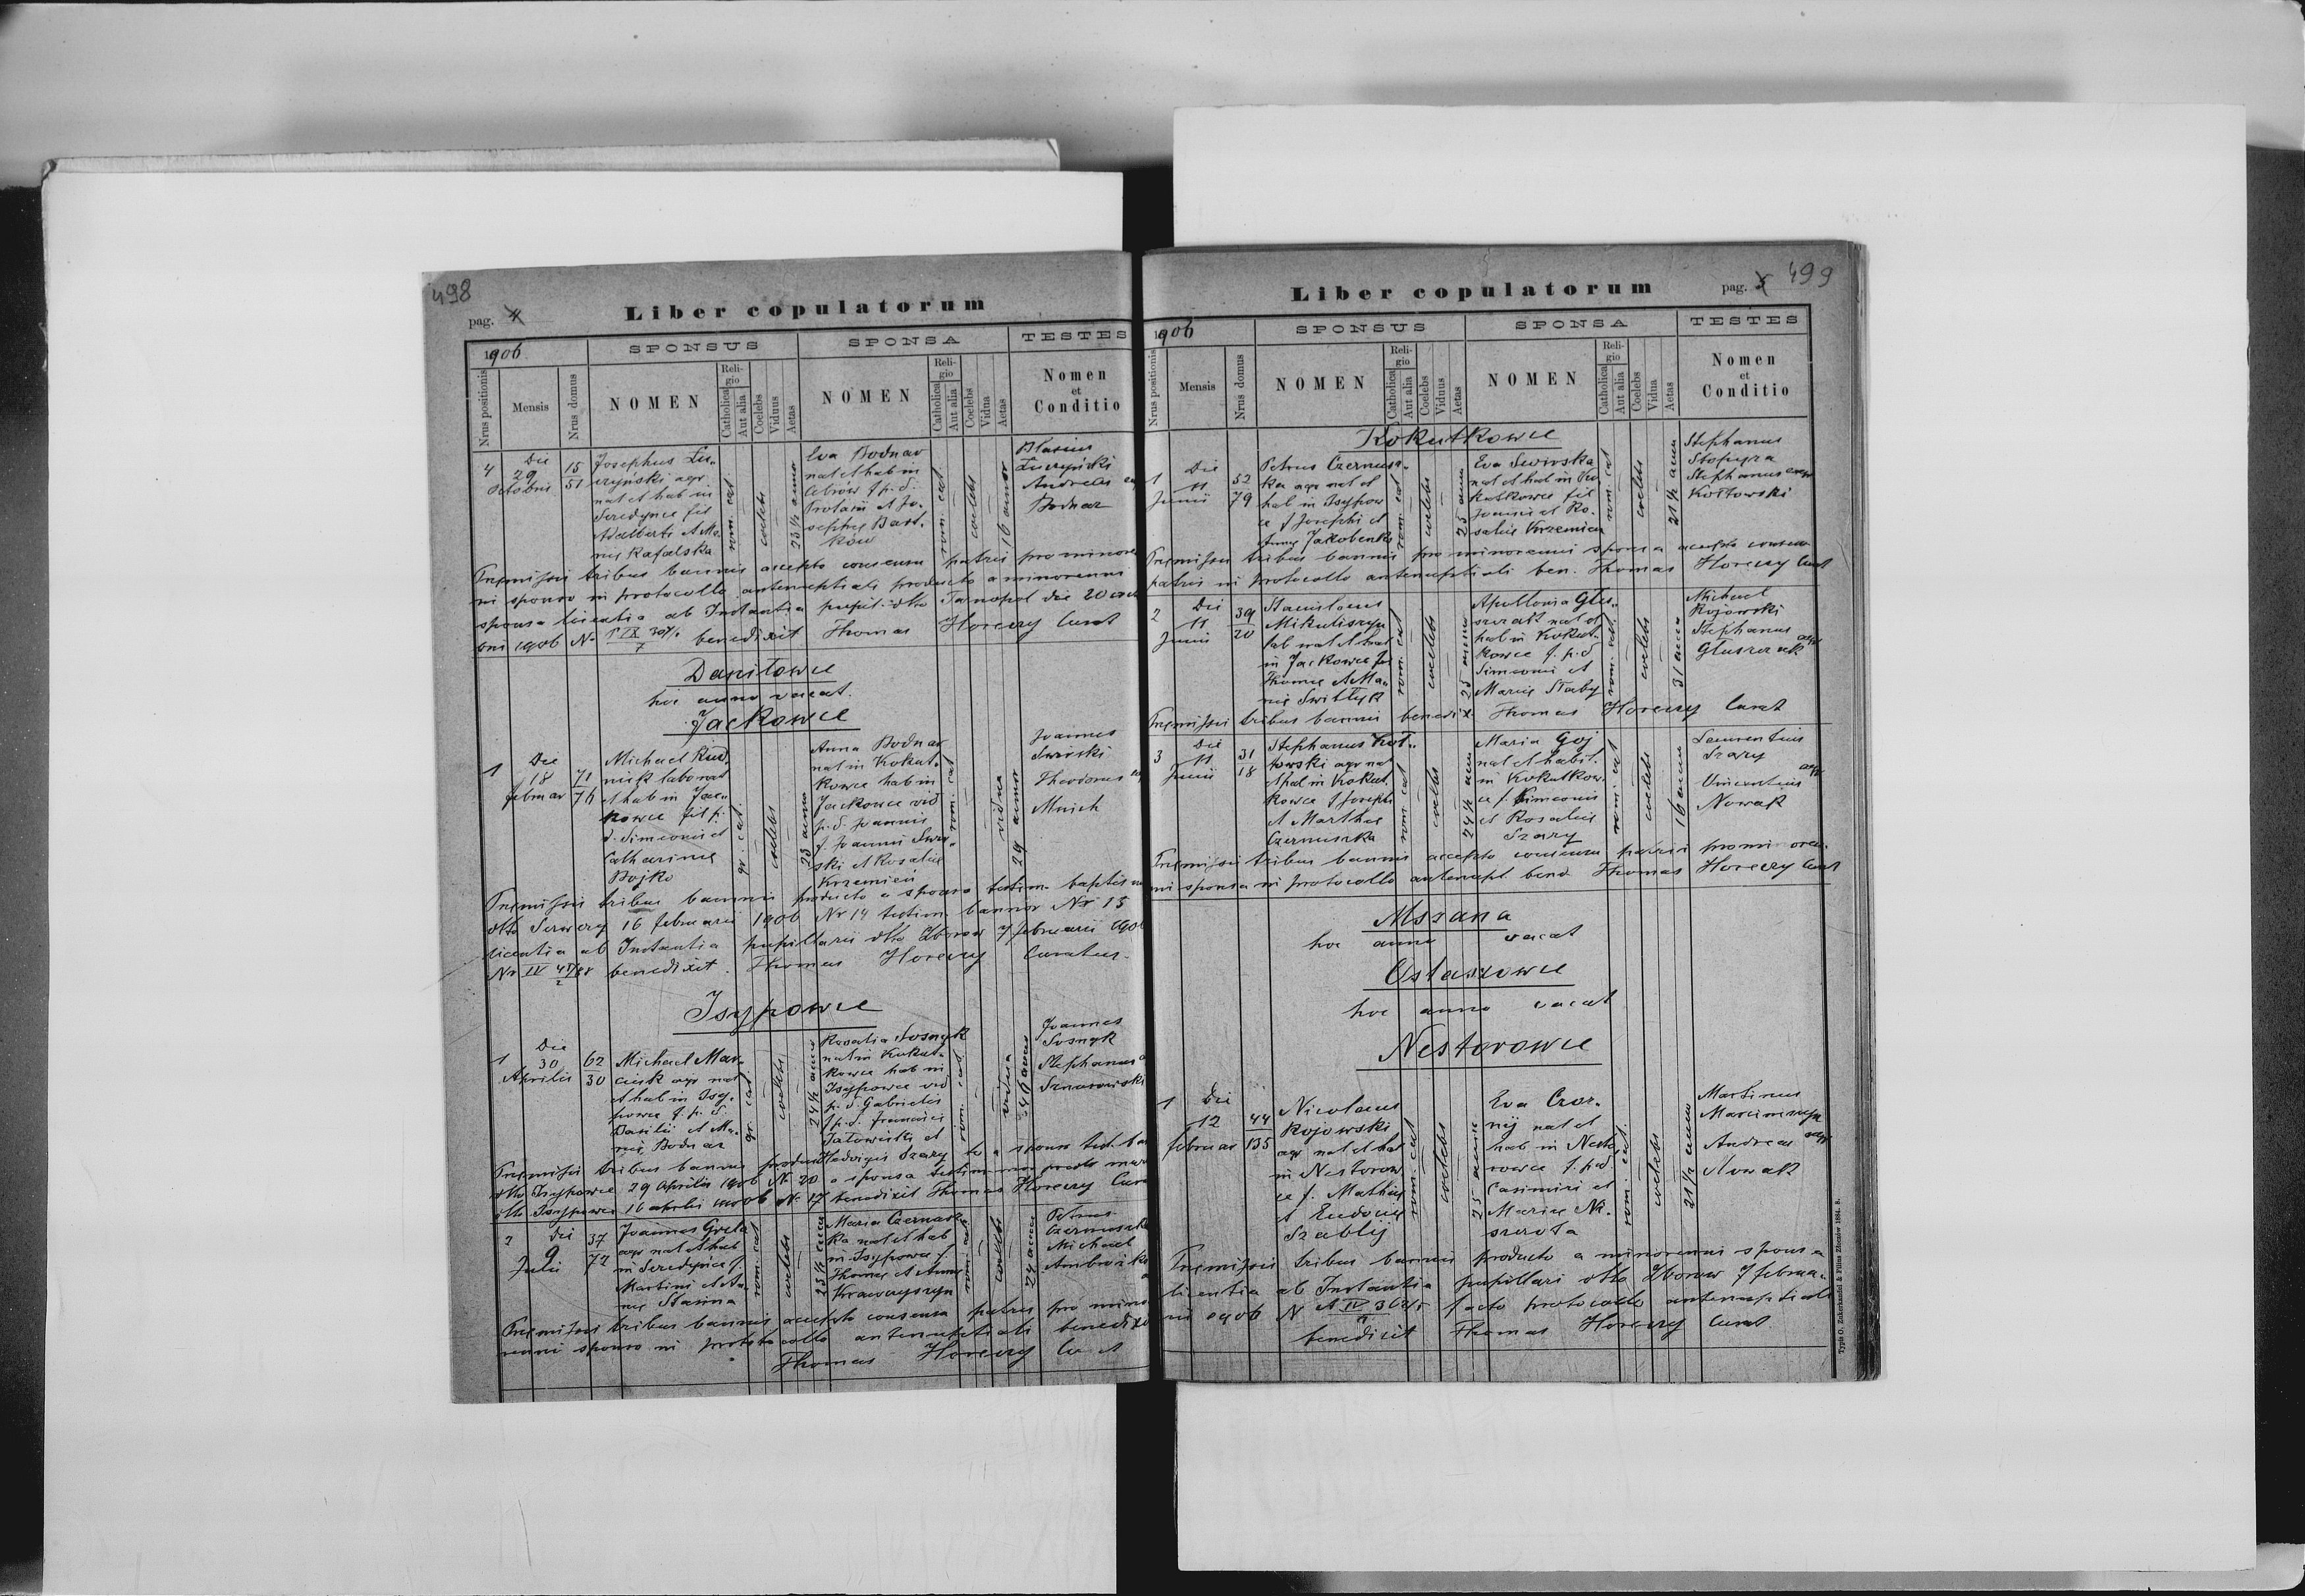 498
pag. 4
Liber copulatorum
1906
SPONSUS
SPONSA
TESTES
Nrus positionis
Mensis
Nrus domus
NOMEN
Religio
Catholica
Aut alia
Coelebs
Viduus
Aetas
NOMEN
Religio
Catholica
Aut alia
Coelebs
Vidua
Aetas
Nomen
et
Conditio
4
Die
29
Octobris
15
51
Josephus Łu-
czyński agr.
nat et hab in
Seredynce fil
Adalberti et Ma-
riae Rafalska
rom. cat
coelebs
23 1/2 anno
Eva Bodnar
nat et hab in
Cebrów f. p. d.
Protasii et Jo-
sephae Bart-
ków
rom. cat
coelebs
16 annor
Blasius
Łuczyński
Andreas
Bodnar
Praemissis tribus bannis accepto consensu patris pro minoren
ni sponso in protocollo antenuptiali producto a minorenni
sponsa licentia ab Instantia pupil. dtto Tarnopol die 20
1906 No benedixit Thomas Horeczy Curat
Daniłowce
hoc anno vacat.
Jackowce
1
Die
18
februar
71
76
Michael Rud-
nick labo nat
et hab in Jac-
kowce fil p.
d. Simeonis et
Catharinae
Bojko
gr. cat.
coelebs
23 anno
Anna Bodnar
nat in Kokut-
kowce hab in
Jackowce vid
p. d. Joannis
f. Joannis Swir-
ski et Rosaliae
Krzemień
rom. cat
vidua
29 annor
Joannes
Swirski
Theodorus
Mnich
Praemissis tribus bannis producto a sponso testim. baptism
dtto Serwery 16 februarii 1906 Nr 14 testim. bannor Nr 15
licentia ab Instantia pupillarii dtto Zborow 7 februarii 906
Nr IV benedixit. Thomas Horeczy Curatus.
Isypowce
1
Die
30
Aprilis
62
30
Michael Mar-
cuk agr nat
et hab in Isy-
powce f. p. d.
Basilii et Ma-
riae Bodnar
gr. cat.
coelebs
24 1/2 anno
Rosalia Sosnyk
nat in Kokut-
kowce hab in
Isypowce vid
p. d. Gabrielis
f. p. d. Francisci
Jałowicki et
Hedvigis Szary
rom. cat
vidua
Joannes
Sosnyk
Stephanus
Sznurowski
Praemissis tribus bannis produc to a sponso test. ban
dtto Isypowce 29 Aprilis 1906 No 20 a sponsa testim
dtto Isypowce 16 aprilis 1906 No 17 benedixit Thomas Horeczy Cura
2
Die
9
Julii
37
72
Joannes Greła
agr nat et hab
in Seredynce f.
Martini et An-
nae Stasina
rom. cat
coelebs
23 1/2 anno
Maria Czernusz-
ka nat et hab
in Isypowce f.
Thomae et Annae
Krawczyszyn
rom. cat
coelebs
24 anno
Petrus
Czernuszka
Michael
Praemissis tribus bannis accepto consensu patris pro mino-
renni sponso in protocollo antenuptiali benedixi
Thomas Horeczy Curat
pag. 5
499
Liber copulatorum
1906
SPONSUS
SPONSA
TESTES
Nrus positionis
Mensis
Nrus domus
NOMEN
Religio
Catholica
Aut alia
Coelebs
Viduus
Aetas
NOMEN
Religio
Catholica
Aut alia
Coelebs
Vidua
Aetas
Nomen
et
Conditio
Kokutkowce
1
Die
11
Junii
52
79
Petrus Czernusz-
ka agr nat et
hab in Isypow
ce f Josephi et
Annae Jakobenko
rom. cat
coelebs
25 ann
Eva Swirska
nat et hab in Ko
kutkowce fil
Joannis et Ro-
saliae Krzemien
rom. cat
coelebs
21 1/2 ann
Stephanus
Stopyra
Stephanus agr
Kotowski
Praemissis tribus bannis pro minorenni sponsa accepto consen
patris in protocollo antenuptiali ben. Thomas Horeczy Curat
2
Die
11
Junii
39
20
Stanislaus
Mikuliszyn
lab nat et hab
in Jackowce fil
Thomae et Ma-
riae Switłyk
rom. cat
coelebs
25 anno
Apollonia Głu-
szczak nat et
hab in Kokut-
kowce f. p. d
Simeonis et
Mariae Słaby
rom. cat.
coelebs
31 anno
Michael
Rojowski
Stephanus agr
Głuszczak
Praemissis tribus bannis benedix. Thomas Horeczy Curat
3
Die
11
Junii
31
18
Stephanus Kot-
towski agr nat
et hab in Kokut
kowce f Josephi
et Marthae
Czernuszka
rom. cat
coelebs
24 1/2 ann
Maria Goj
nat et habit.
in Kokutkow-
ce f. Simeonis
et Rosaliae
Szary
rom. cat
coelebs
16 annor
Laurentius
Szary
agr
Vincentius
Nowak
Praemissis tribus bannis accepto consensu patris pro minoren-
ni sponsa in protocollo antenupt. bened Thomas Horeczy Curat
Mszana
hoc anno vacat
Ostaszowce
hoc anno vacat
Nestorowce
1
Die
12
februar
44
135
Nicolaus
Rojowski
agr nat et hab
in Nestorow
ce f. Mathiae
et Eudociae
Szablij
rom. cat
coelebs
25 anno
Eva Czor-
nij nat et
hab in Nesto
rowce f. p. d.
Casimiri et
Mariae Ni-
szczota
rom. cat.
coelebs
21 1/2 anno
Martinus
Marciniszyn
agr
Andreas
Nowak
Praemissis tribus bannis producto a minorenni sponsa
licentia ab Instantia pupillari dtto Zborow 7 februa-
rii 1906 N facto protocollo antenuptiali
benedixit Thomas Horeczy Curat
Typis O. Zukerkandel & Filius Złoczów 1884. 8.